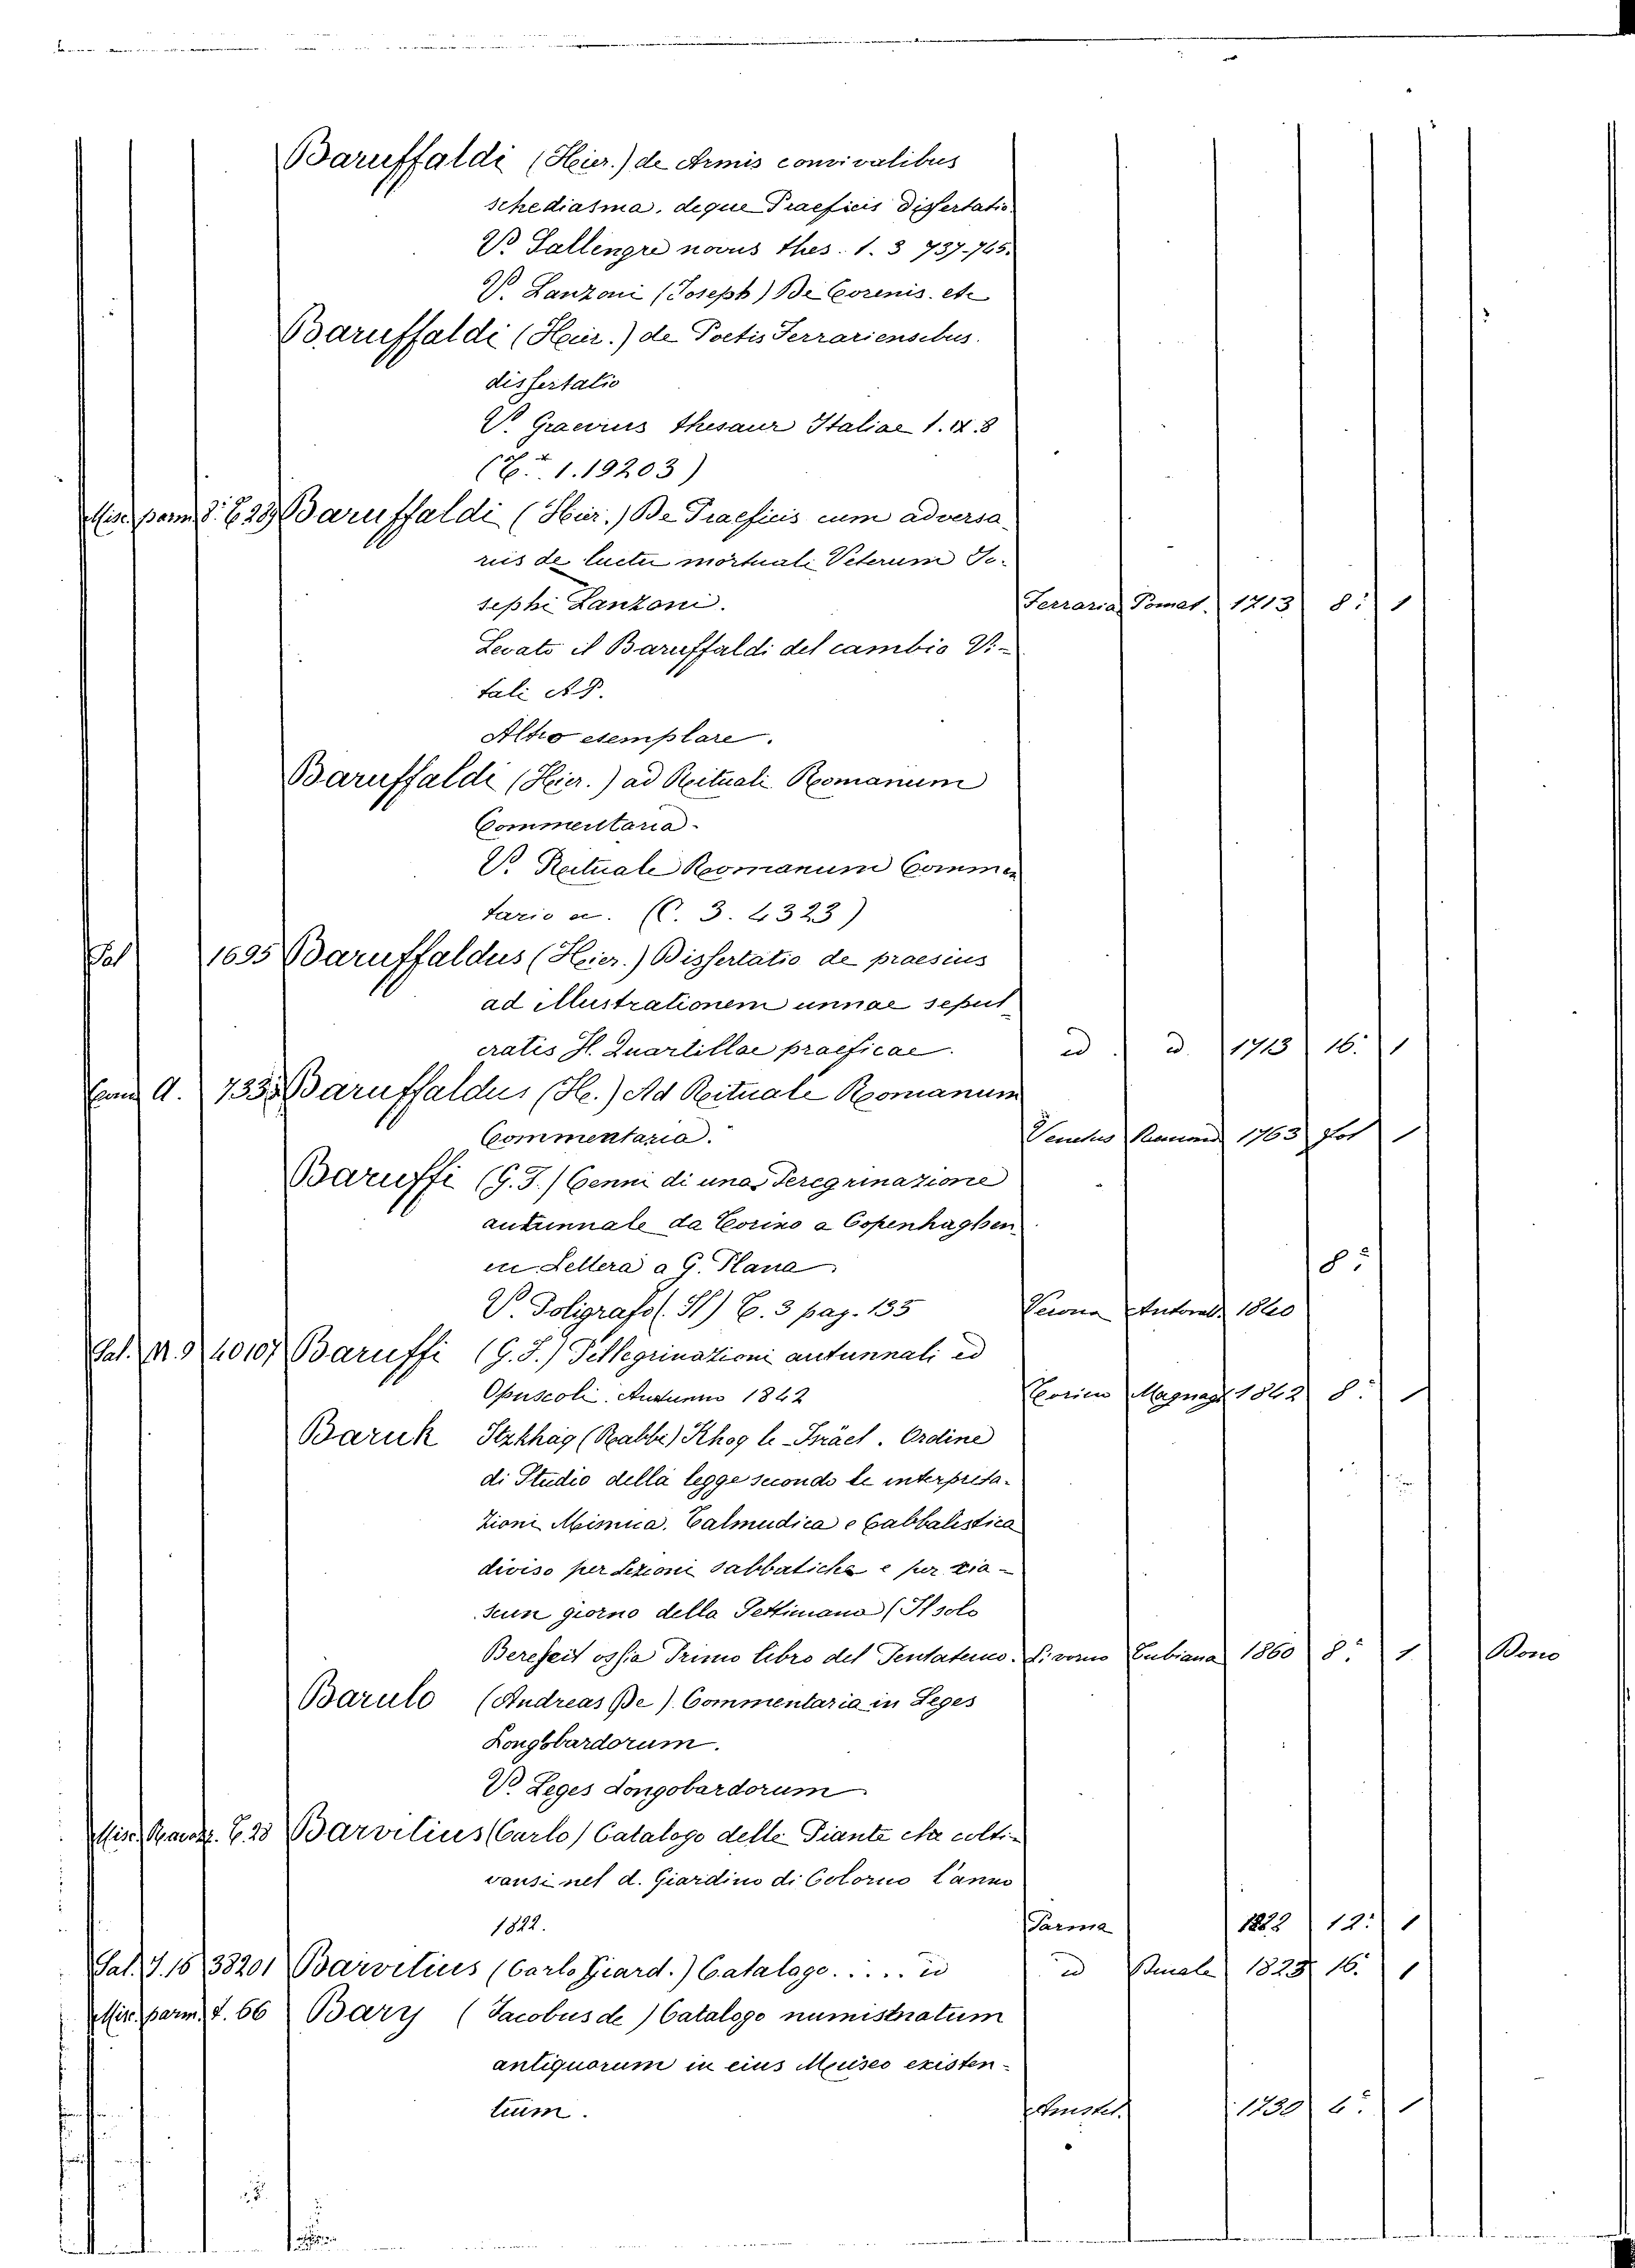 Baruffaldi (Hier.) de Armis convivalibus
schediasma, deque Praeficis dissertatio.
V. Sallengre novus thes. t. 3 737-765.
V. Lanzoni (Joseph) De Corenis. etc
Baruffaldi (Hier.) de Poetis Ferrariensibus.
dissertatio
V. Graevius thesaur Italiae t. IX. 8
1.19203)
Misc. parm. 8. 629 Baruffaldi (Hier.) De Praeficis cum adversa-
riis de luctu mortuali Veterum Jo-
sephi Lanzoni. Ferraria Pomat. 1713 8: 1
Levato il Baruffaldi del cambio Vi-
tali A P.
Altro esemplare.
Baruffaldi (Hier.) ad Rituali Romanum
Commentaria.
V. Rituale Romanum Commen
tario a. (C. 3. 4323)
Pal 1695 Baruffaldus (Hier.) Dissertatio de praesius
ad illustrationem unnae seput
cratis H. Quartillae praeficae. id. id. 1713 16: 1
A. 7335 Baruffaldus (H.) Ad Rituale Romanum
Commentaria. Venetus 1763 fol 1
Baruffi (G. F.) Cenni di una Peregrinazione
autunnale da Torino a Copenhaghen
in Lettera a G. Plana 8:
V. Poligrafo (Il) T. 3 pag. 135 Verona Antonel. 1840
Pal. N. 9 40107 Baruffi (G. F.) Pellegrinazioni autunnali ed
Opuscoli. Autunno 1842 Torino Magnag. 1842 8: 1
Baruk Itzkhag (Rabbi) Khog le-Israel. Ordine
di Studio della legge secondo le interpreta-
zioni Mimica. Talmudica e Cabbalistica
diviso per Sezioni Sabbatiche e per cia-
scun giorno della Settimana (Il solo
Bereseit ossia Primo libro del Pentateuco. Livorno Tubiana 1860 8: 1 Bono
Barulo (Andreas De) Commentaria in Leges
Longobardorum.
V. Leges Longobardorum
Misc. E. 23 Barvitius (Carlo) Catalogo delle Piante che colti-
vansi nel d. Giardino di Colorno l'anno
1822. Parma 1822 12: 1
Pal. I. 15 38201 Barvitius (Carlo Giard.) Catalago. .... id id 1823 16. 1
Misc. parm. t. 66 Bary (Jacobus de) Catalogo numistratum
antiquorum in eius Museo existen-
tium. Amstel. 1730 6: 1